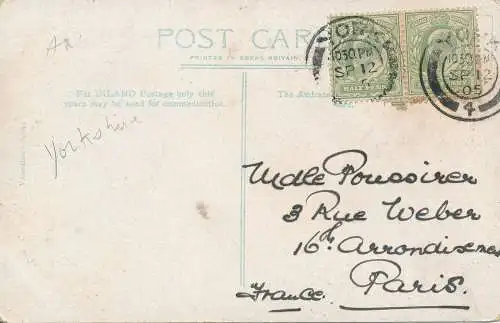 Ax
POST CARD
PRINTED IN GREAT BRITAIN
For INLAND Postage only this
space may be used for communication.
The Address
YORK
10 30 PM
SP 12
YORK
10 30 PM
SP 12
05
4
HALF
Yorkshire
Mdlle Poussirer
3 Rue Weber
16h Arrondissem
Paris.
France.